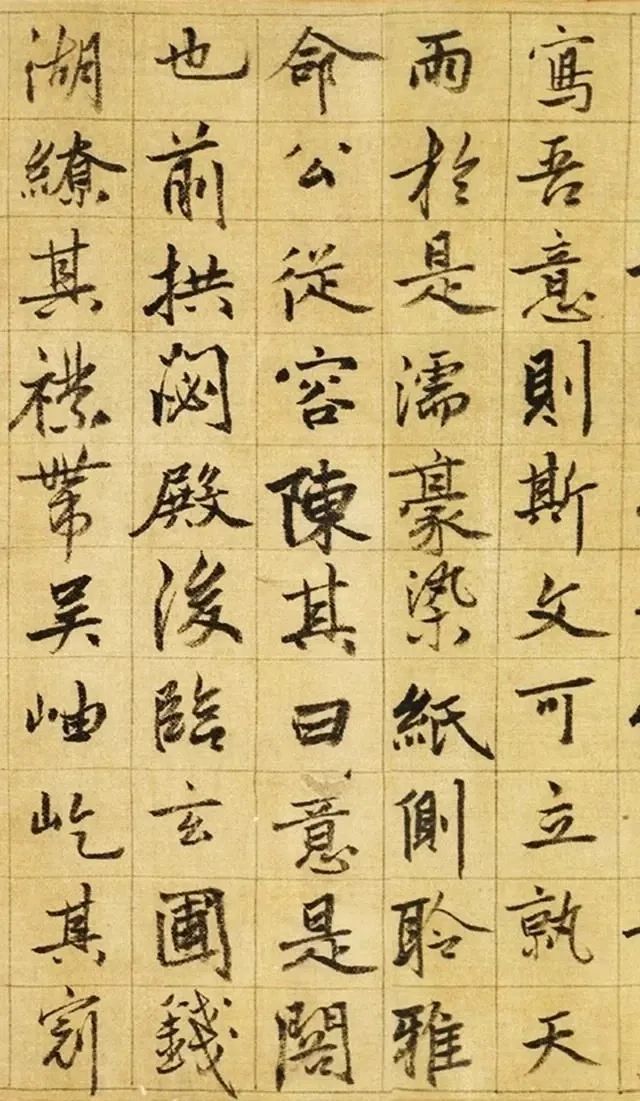 寫吾意則斯文可立孰天
雨於是濡豪染紙側聆雅
命公從容陳其曰意是閣
也前拱閟殿後臨玄圃錢
湖繚其襟帶吳岫屹其